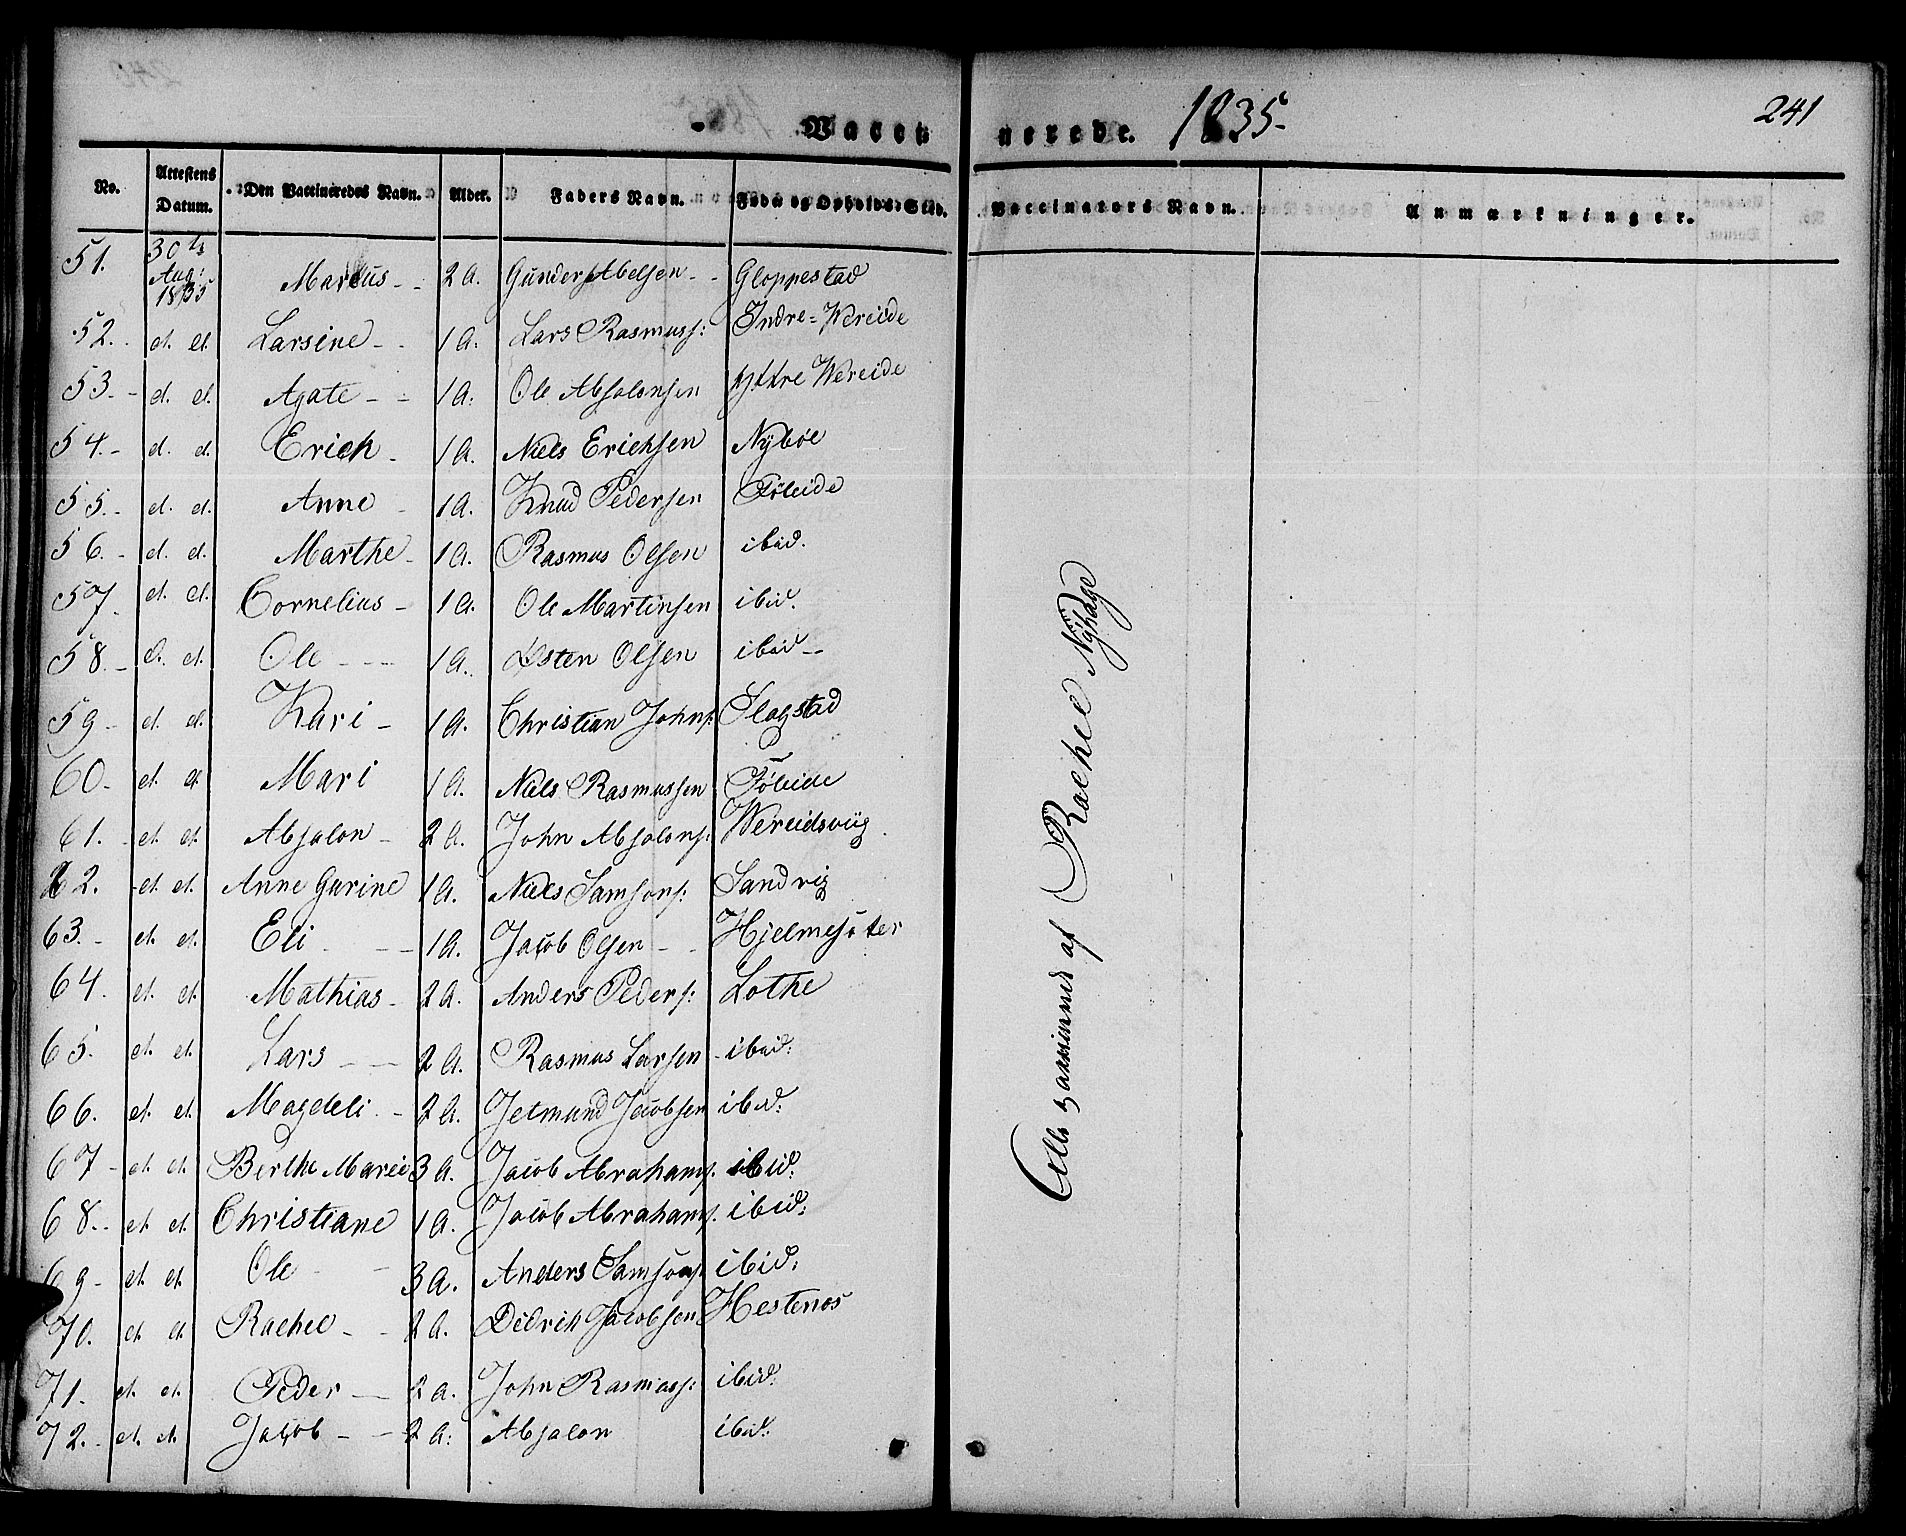 Vaccinerede. 1835. 241
No. Attestens Datum. Den Vaccineredes Navn. Alder. Faders Navn. Føde og Opholds-Sted. Vaccinators Navn. Anmærkninger.
51. 30te Aug: 1835 Marcus - - 2 A. Gunder Abelsen - - Gloppestad
52. d. d. Larsine - - 1 A: Lars Rasmuss: Indre=Wereide
53. - d. d. Agate - - 1 A: Ole Absalonsen Yttre Wereide
54. - d. d. Erich - 1 A. Niels Erichsen Nybøe
55. - d. d. Anne - 1 A. Knud Pedersen Føleide
56. - d. d. Marthe - 1 A. Rasmus Olsen ibid.
57. d. d. Cornelius - 1 A. Ole Martinsen ibid.
58. - d. d. Ole - - - 1 A. Østen Olsen ibid --
59 - d. d. Kari - 1 A. Christian Johns: Slogstad
60. - d. d. Mari 1 A. Niels Rasmussen Føleide
61. - d. d. Absalon - 2 A. John Absalons: Wereidsviig
62. - d. d. Anne Gurine 1 A. Niels Samsons: Sandvig
63. - d. d. Eli - - - 1 A. Jacob Olsen - - Hjelmesæter
64. d. d. Mathias - 2 A. Anders Peders: Lothe
65. d. d. Lars - - 2 A. Rasmus Larsen - ibid:
66. d. d. Magdeli - 2 A. Jetmund Jacobsen ibid:
67 - d. d. Berthe Marie 3 A. Jacob Abrahams. ibid:
68. - d. d. Christiane 1 A. Jacob Abrahams. ibid:
69 - d. d. Ole - 3 A. Anders Samsons. ibid:
70. d. d. Rachel - - 2 A. Didrik Jacobsen Hestenos
71. d. d. Peder - - 2 A. John Rasmuss: ibid:
72. - d. d. Jacob - - 2 A: Absalon ibid:
Alle vaccinerede af Rachel Nyhage